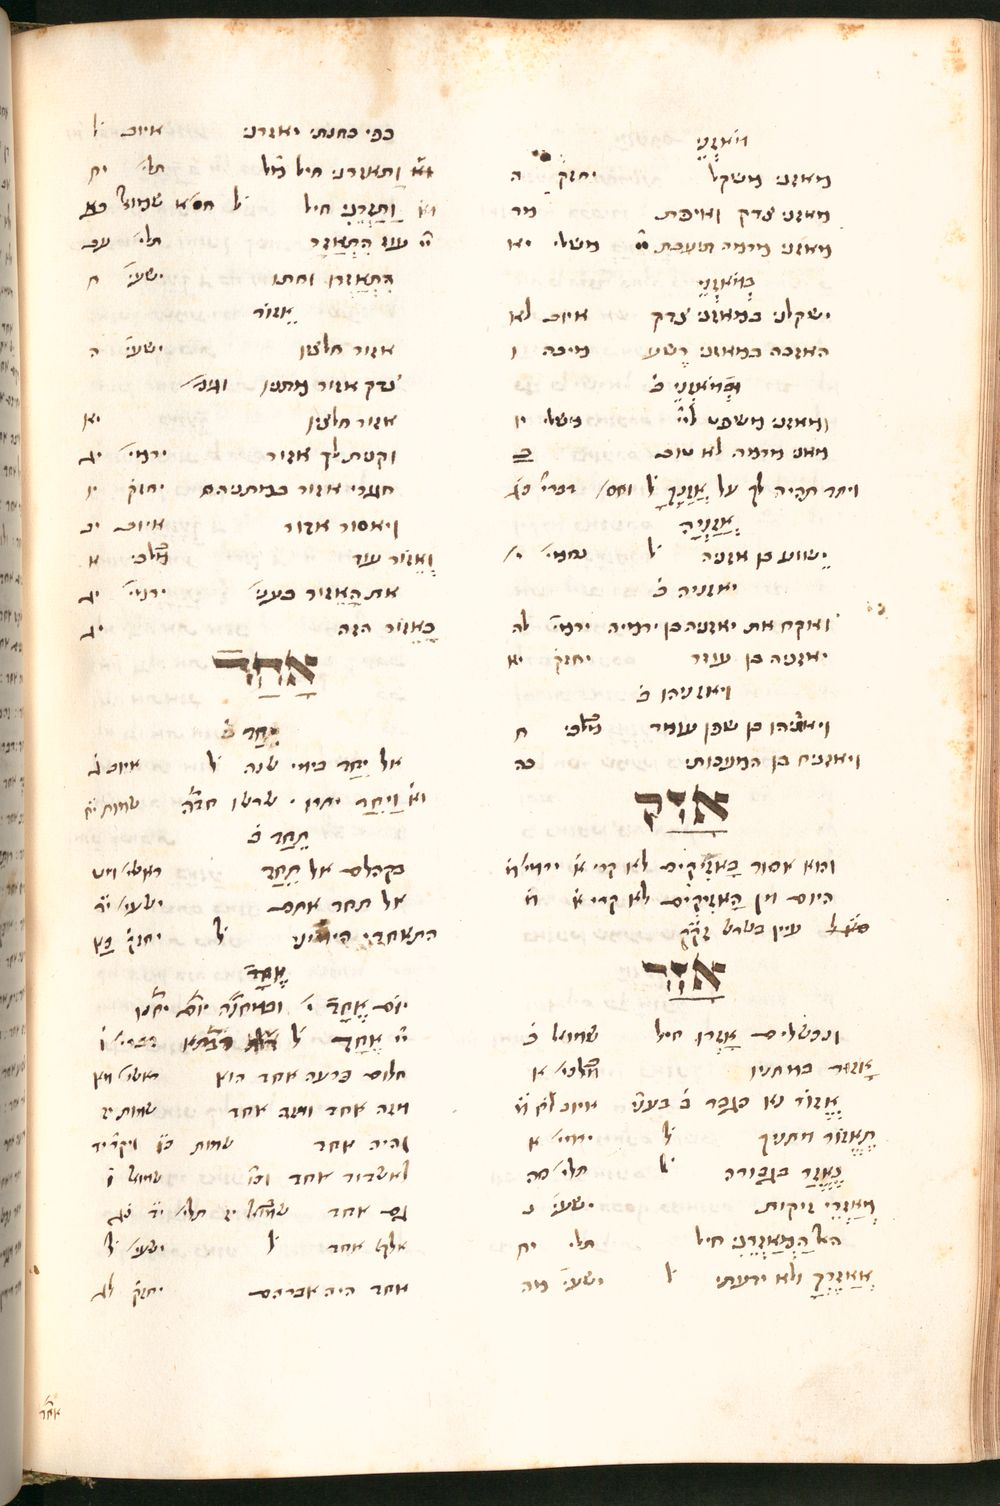 מאזני
מאזני משקל יחזק׳ ה
מאזני צדק ואיפת מה
מאזני מרמה תועבת יי׳ משלי יא
במאזני
ישקלני במאזני צדק איוב לא
האזכה במאזני רשע מיכה ו
ומאזני ב׳
ומאזני משפט ליי׳ משלי יו
מאזני מרמה לא טוב כ
ויתד תהיה לך על אזנך ל׳ וחס׳ דברי׳ כג
אזניה
ישוע בן אזניה ל׳ נחמי׳ י׳
יאזניה ב׳
ואקח את יאזניה בן ירמיה ירמי׳ לה
יאזניה בן עזור יחזק׳ יא
ויאזניהו ב׳
ויאזניהו בן שפן עומד יחזק׳ ח
ויאזניה בן המעכתי כה
אזק
והוא אסור באזיקים לא קרי א׳ ירמי׳ מ׳
היום מן האזיקים לא קרי א׳ מ׳
עיין בשרש זקק
אזר
ונכשלים אזרו חיל שמואל ב׳
אזור במתניו מלכי׳ א
אזור נא כגבר ב׳ בעני׳ איוב לח מ׳
תאזור מתניך ל׳ ירמי׳ א
נאזר בגבורה ל׳ תלי׳ סה
מאזרי זיקות ישעי׳ נ
האל המאזרני חיל תלי׳ יח
אאזרך ולא ידעתני ל׳ ישעי׳ מה
כפי כתנתי יאזרני איוב ל׳
ותאזרני חיל תלי׳ יח
ותזרני חיל ל׳ חס׳ א׳ שמואל כב
יי׳ עוז התאזר תלי׳ צב
התאזרו וחתו ישעי׳ ח
אזור
אזור חלציו ישעי׳ ה
צדק אזור מתניו
אזור חלציו יא
וקנית לך אזור ירמי׳ יג
חגורי אזור במתניהם יחזק׳ יו
ויאסור אזור איוב יב
ואזור עור מלכי׳ א
את האזור בעני׳ ירמי׳ יג
כאזור הזה יג
אחד
יחד ב׳
אל יחד בימי שנה ל׳ איוב ג
שמות יח
תחד ב׳
בקהלם אל תחד ראשי׳ מט
אל תחד אתם ישעי׳ יד
התאחדי הימיני ל׳ יחזק׳ כא
אחד
יום אחד
יי׳ אחד דברי׳ ו
חלום פרעה אחד הוא ראשי׳ מא
מזה אחד ומזה אחד שמות יז
והיה אחד שמות
לאשדוד אחד שמואל ו
גם אחד תלי׳ יד נג
אלף אחד ל׳ ישעי׳ ל׳
אחד היה אברהם יחזק׳ לג
אחר